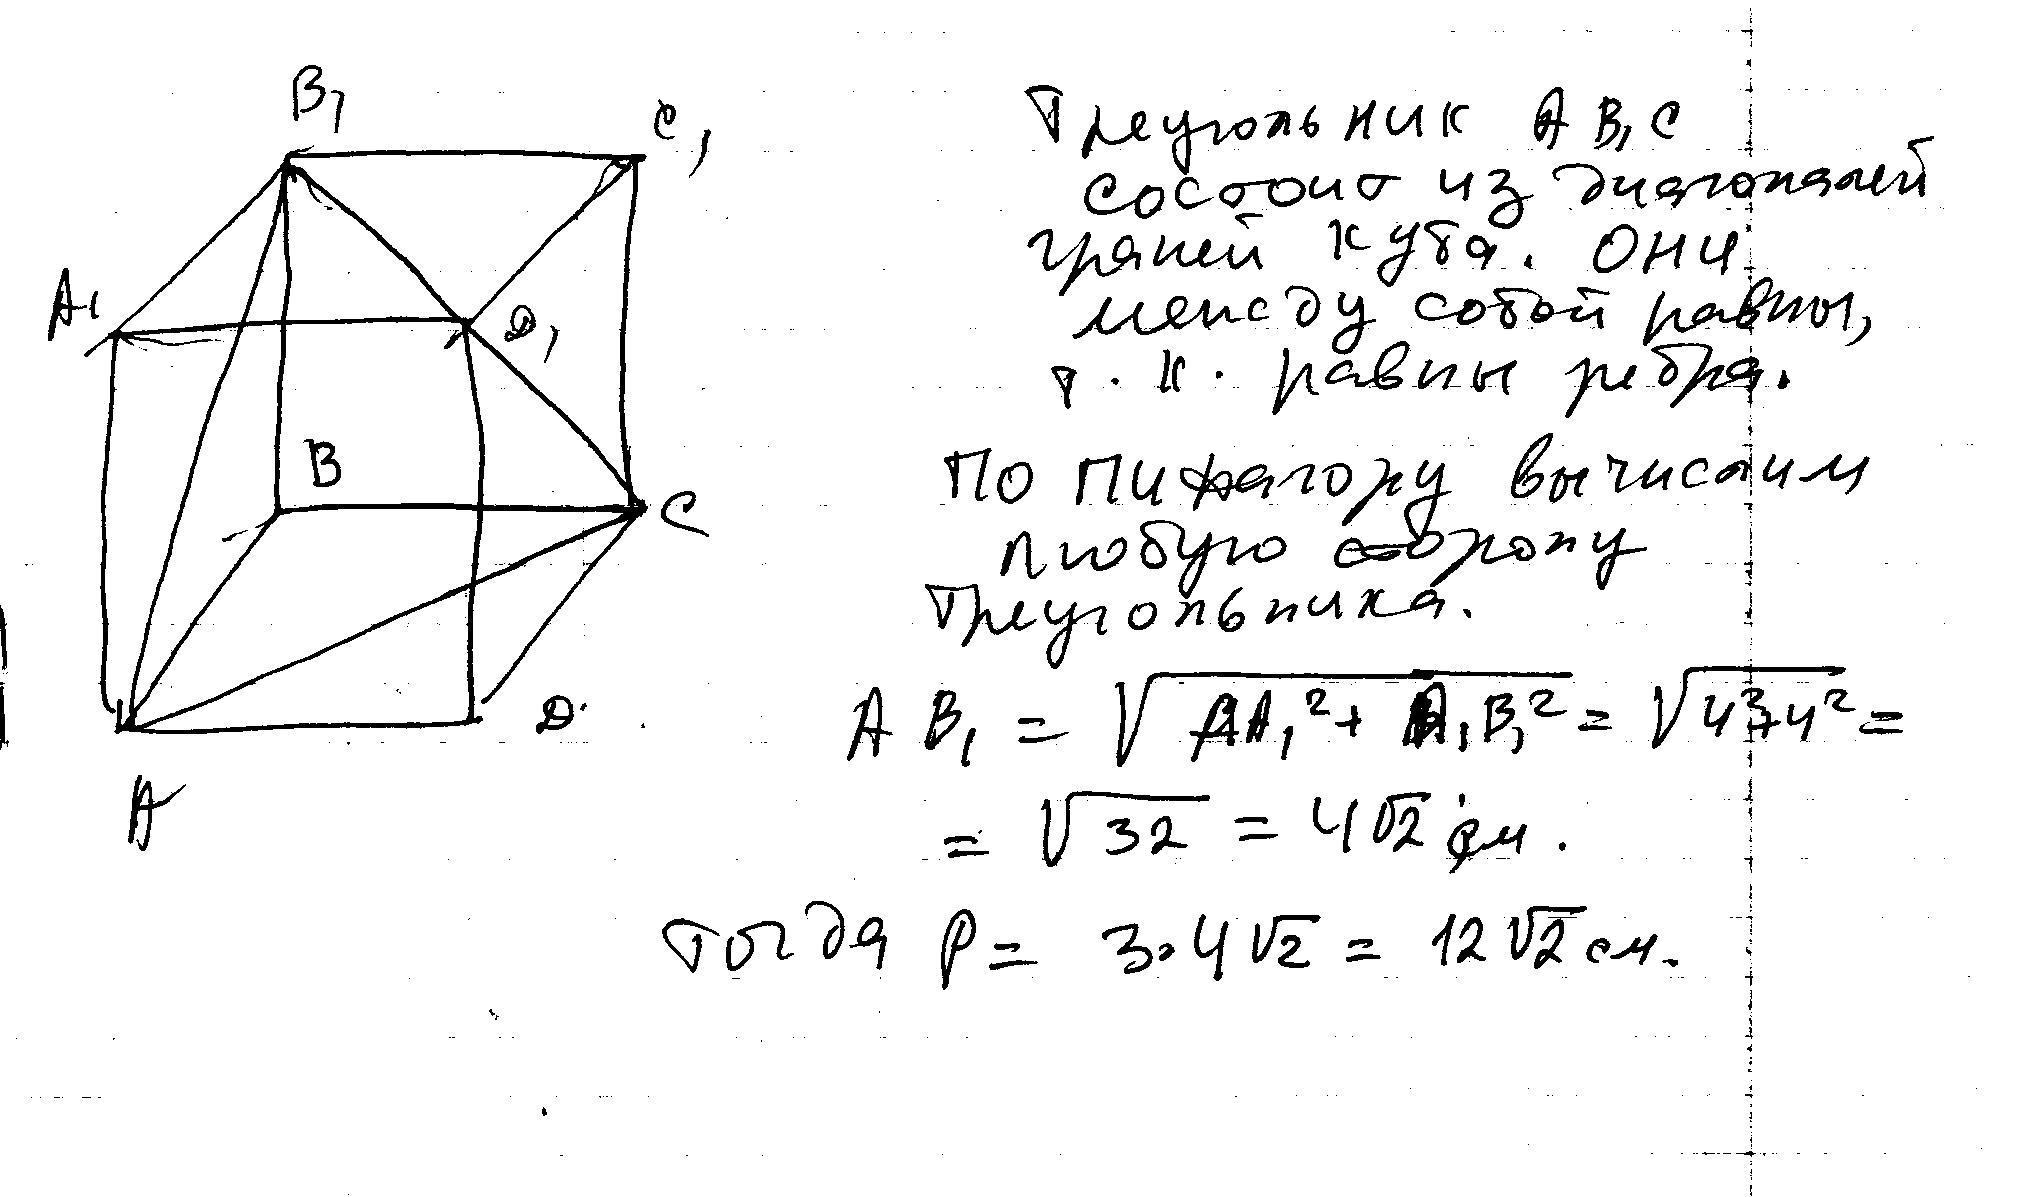 B₁
C₁
A₁
D₁
B
C
D
A
Треугольник AB₁C
состоит из диагоналей
граней куба. Они
между собой равны,
т.к. равны ребра.
По Пифагору вычислим
любую сторону
треугольника.
AB₁ = √(AA₁² + A₁B₁²) = √(4²+4²) =
= √32 = 4√2 см.
тогда P = 3·4√2 = 12√2 см.